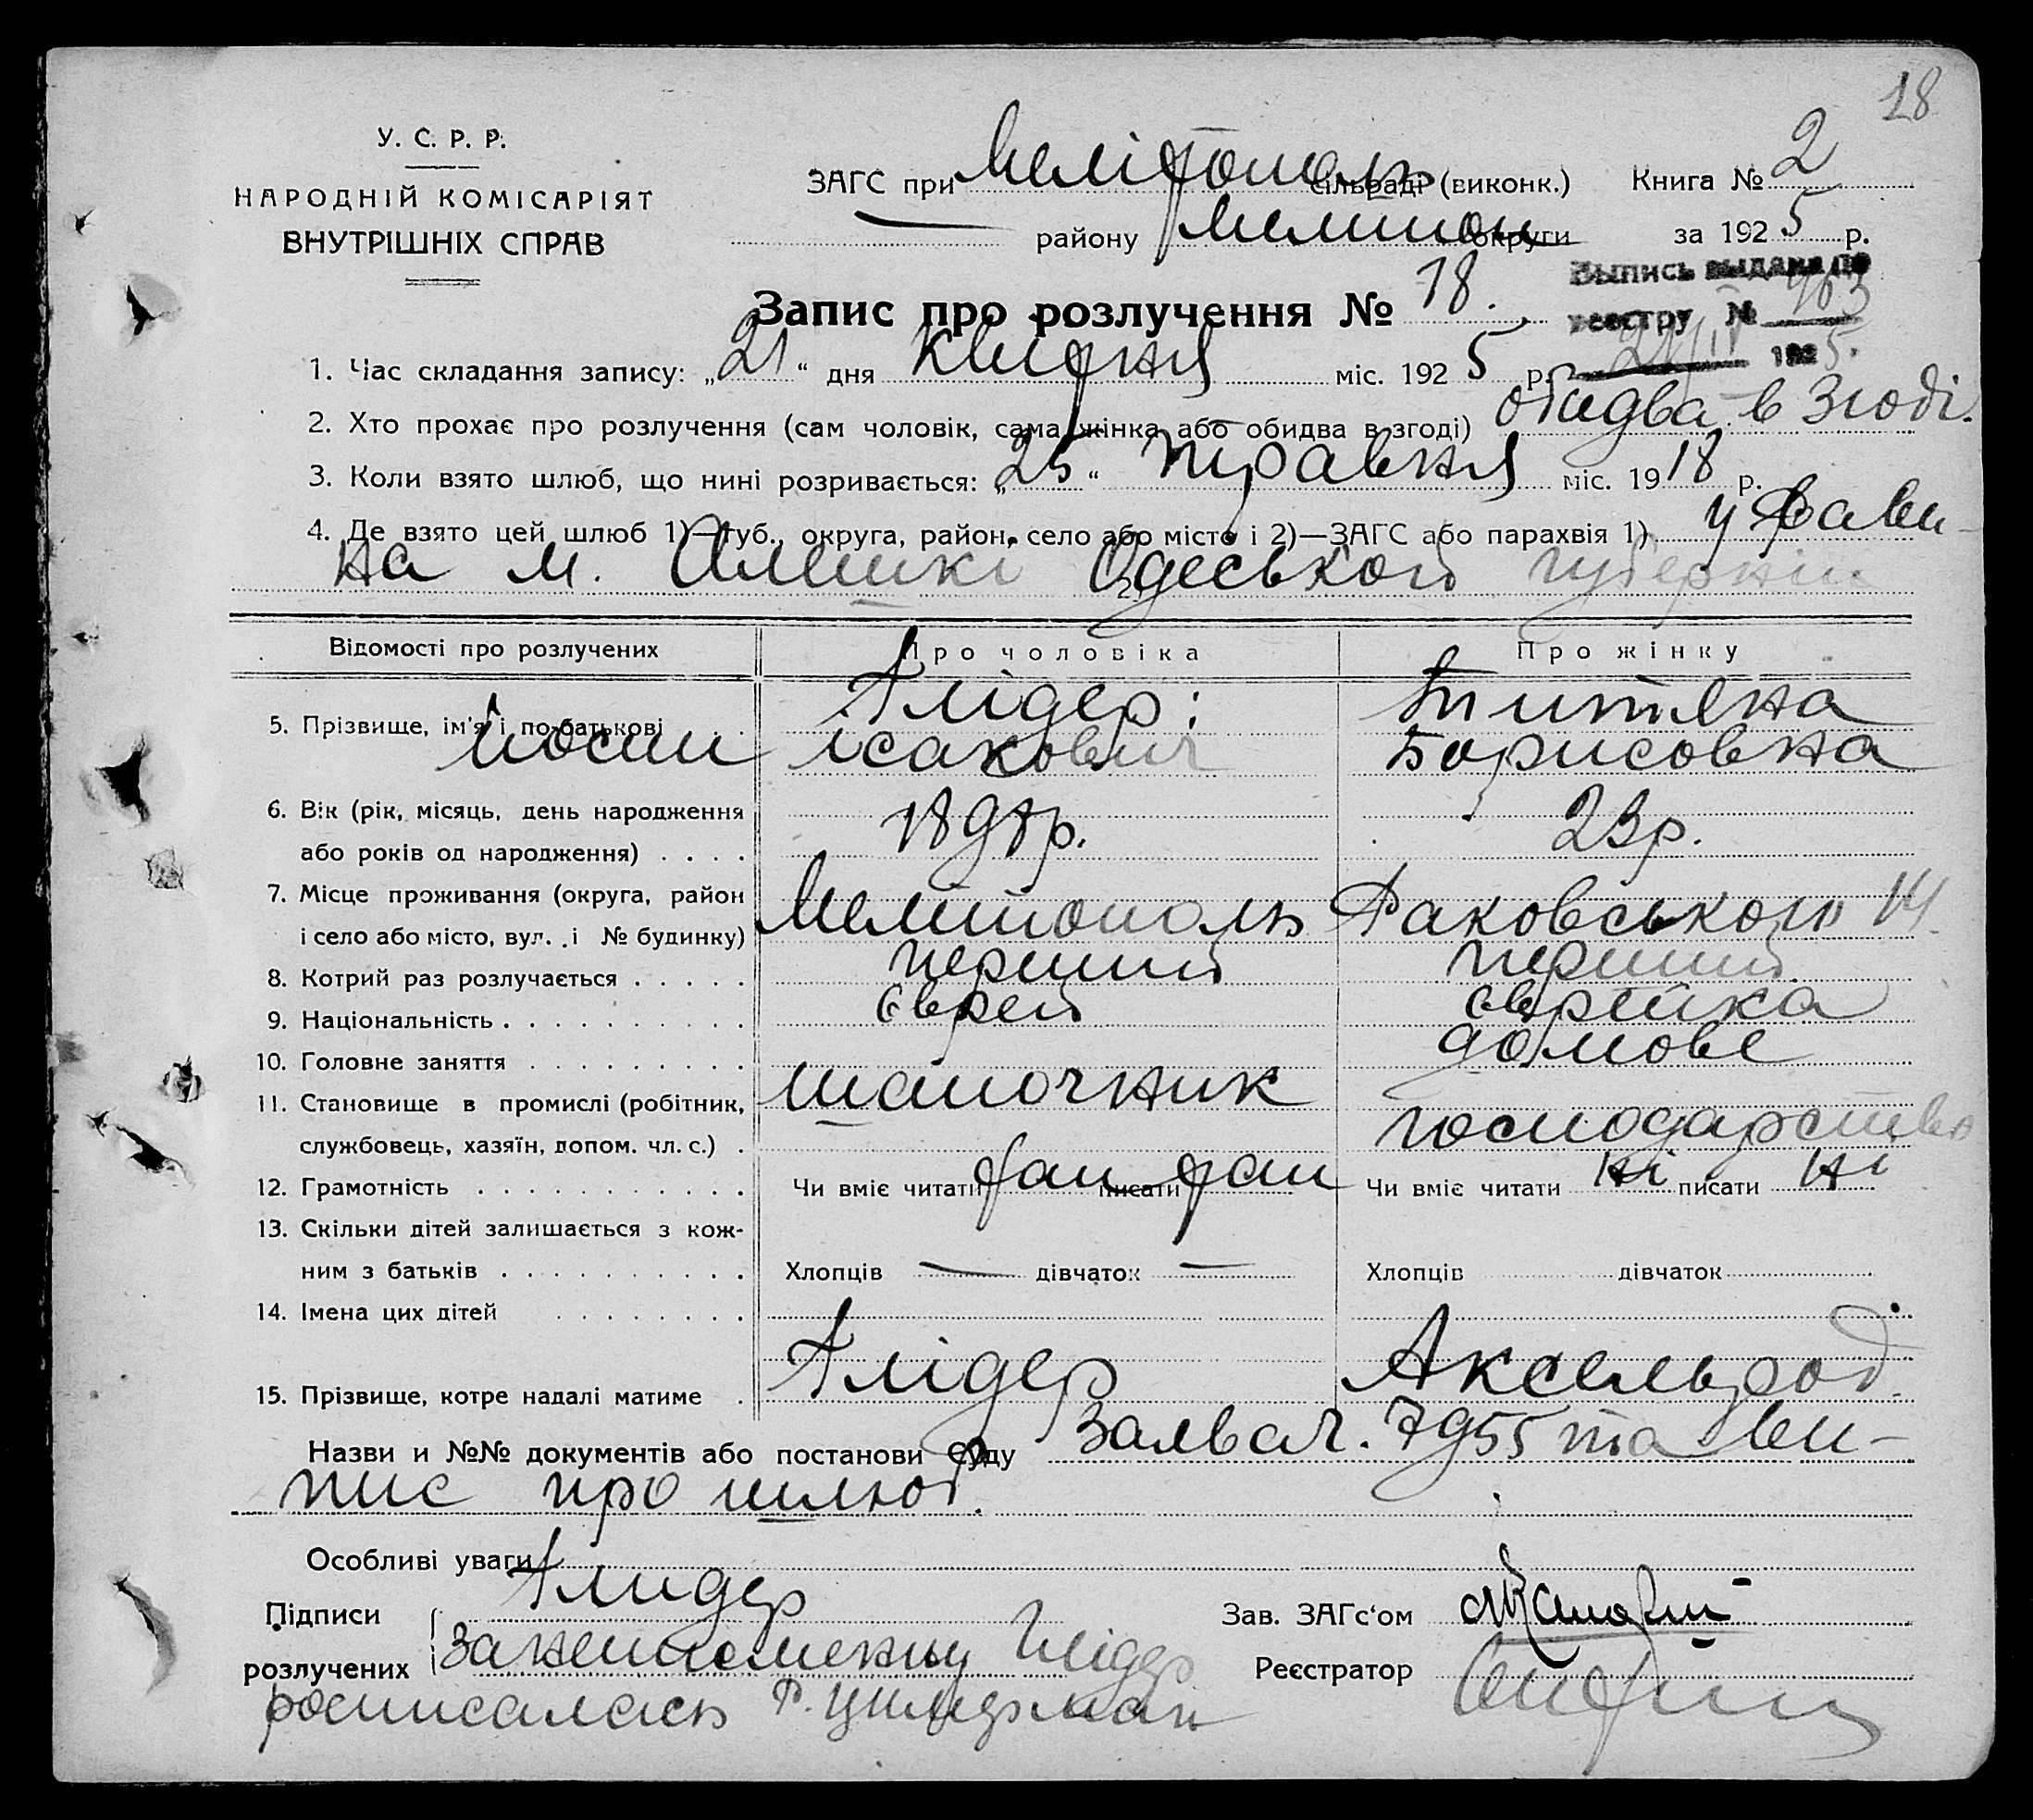 18
У. С. Р. Р.
НАРОДНІЙ КОМІСАРІЯТ
ВНУТРІШНІХ СПРАВ
ЗАГС при Мелітополь сільраді (виконк.) Книга № 2
— району Мелитоп округи за 1925 р.
Выпись выдана по
реестру № 1925.
Запис про розлучення № 18.
1. Час складання запису: „21“ дня Квитня міс. 1925 р.
2. Хто прохає про розлучення (сам чоловік, сама жінка або обидва в згоді) обидва в згоді.
3. Коли взято шлюб, що нині розривається: „25“ травня міс. 1918 р.
4. Де взято цей шлюб 1)—губ., округа, район, село або місто і 2)—ЗАГС або парахвія 1) у Рави-
на м. Алешкі Одеської губернии
Відомості про розлучених Про чоловіка Про жінку
5. Прізвище, ім'я і по батькові Глідер: Титяна
Йосип Ісакович Борисовна
6. Вік (рік, місяць, день народження
або років од народження) 1898р. 23р.
7. Місце проживання (округа, район
і село або місто, вул. і № будинку) Мелитополь Раковського 14
8. Котрий раз розлучається перший перший
9. Національність Єврей Єврейка
10. Головне заняття шапочник домове
11. Становище в промислі (робітник,
службовець, хазяїн, допом. чл. с.) господарство
12. Грамотність Чи вміє читати так писати так Чи вміє читати ні писати ні
13. Скільки дітей залишається з кож-
ним з батьків Хлопців — дівчаток — Хлопців дівчаток
14. Імена цих дітей
15. Прізвище, котре надалі матиме Глідер Аксельрод
Назви и №№ документів або постанови Суду Заява ч. 7955 та ви-
пис про шлюб.
Особливі уваги
Підписи Глидер Зав. ЗАГс'ом
розлучених За неписменну Глідер Реєстратор
росписалась Р. Цимерман